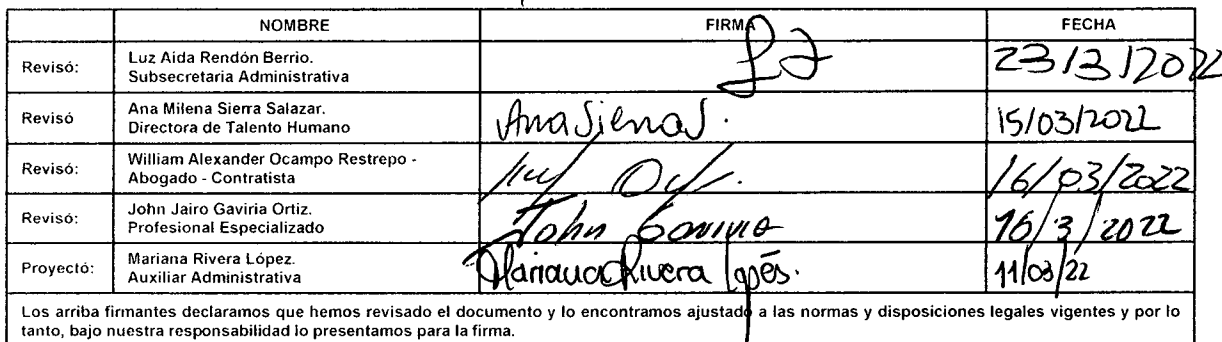 NOMBRE FIRMA FECHA
Revisó: Luz Aida Rendón Berrio.
Subsecretaria Administrativa
23/3/2022
Revisó Ana Milena Sierra Salazar.
Directora de Talento Humano
Ana Sierra S. 15/03/2022
Revisó: William Alexander Ocampo Restrepo -
Abogado - Contratista
16/03/2022
Revisó: John Jairo Gaviria Ortiz.
Profesional Especializado
John Gaviria 16/3/2022
Proyectó: Mariana Rivera López.
Auxiliar Administrativa
Mariana Rivera López. 11/03/22
Los arriba firmantes declaramos que hemos revisado el documento y lo encontramos ajustado a las normas y disposiciones legales vigentes y por lo
tanto, bajo nuestra responsabilidad lo presentamos para la firma.